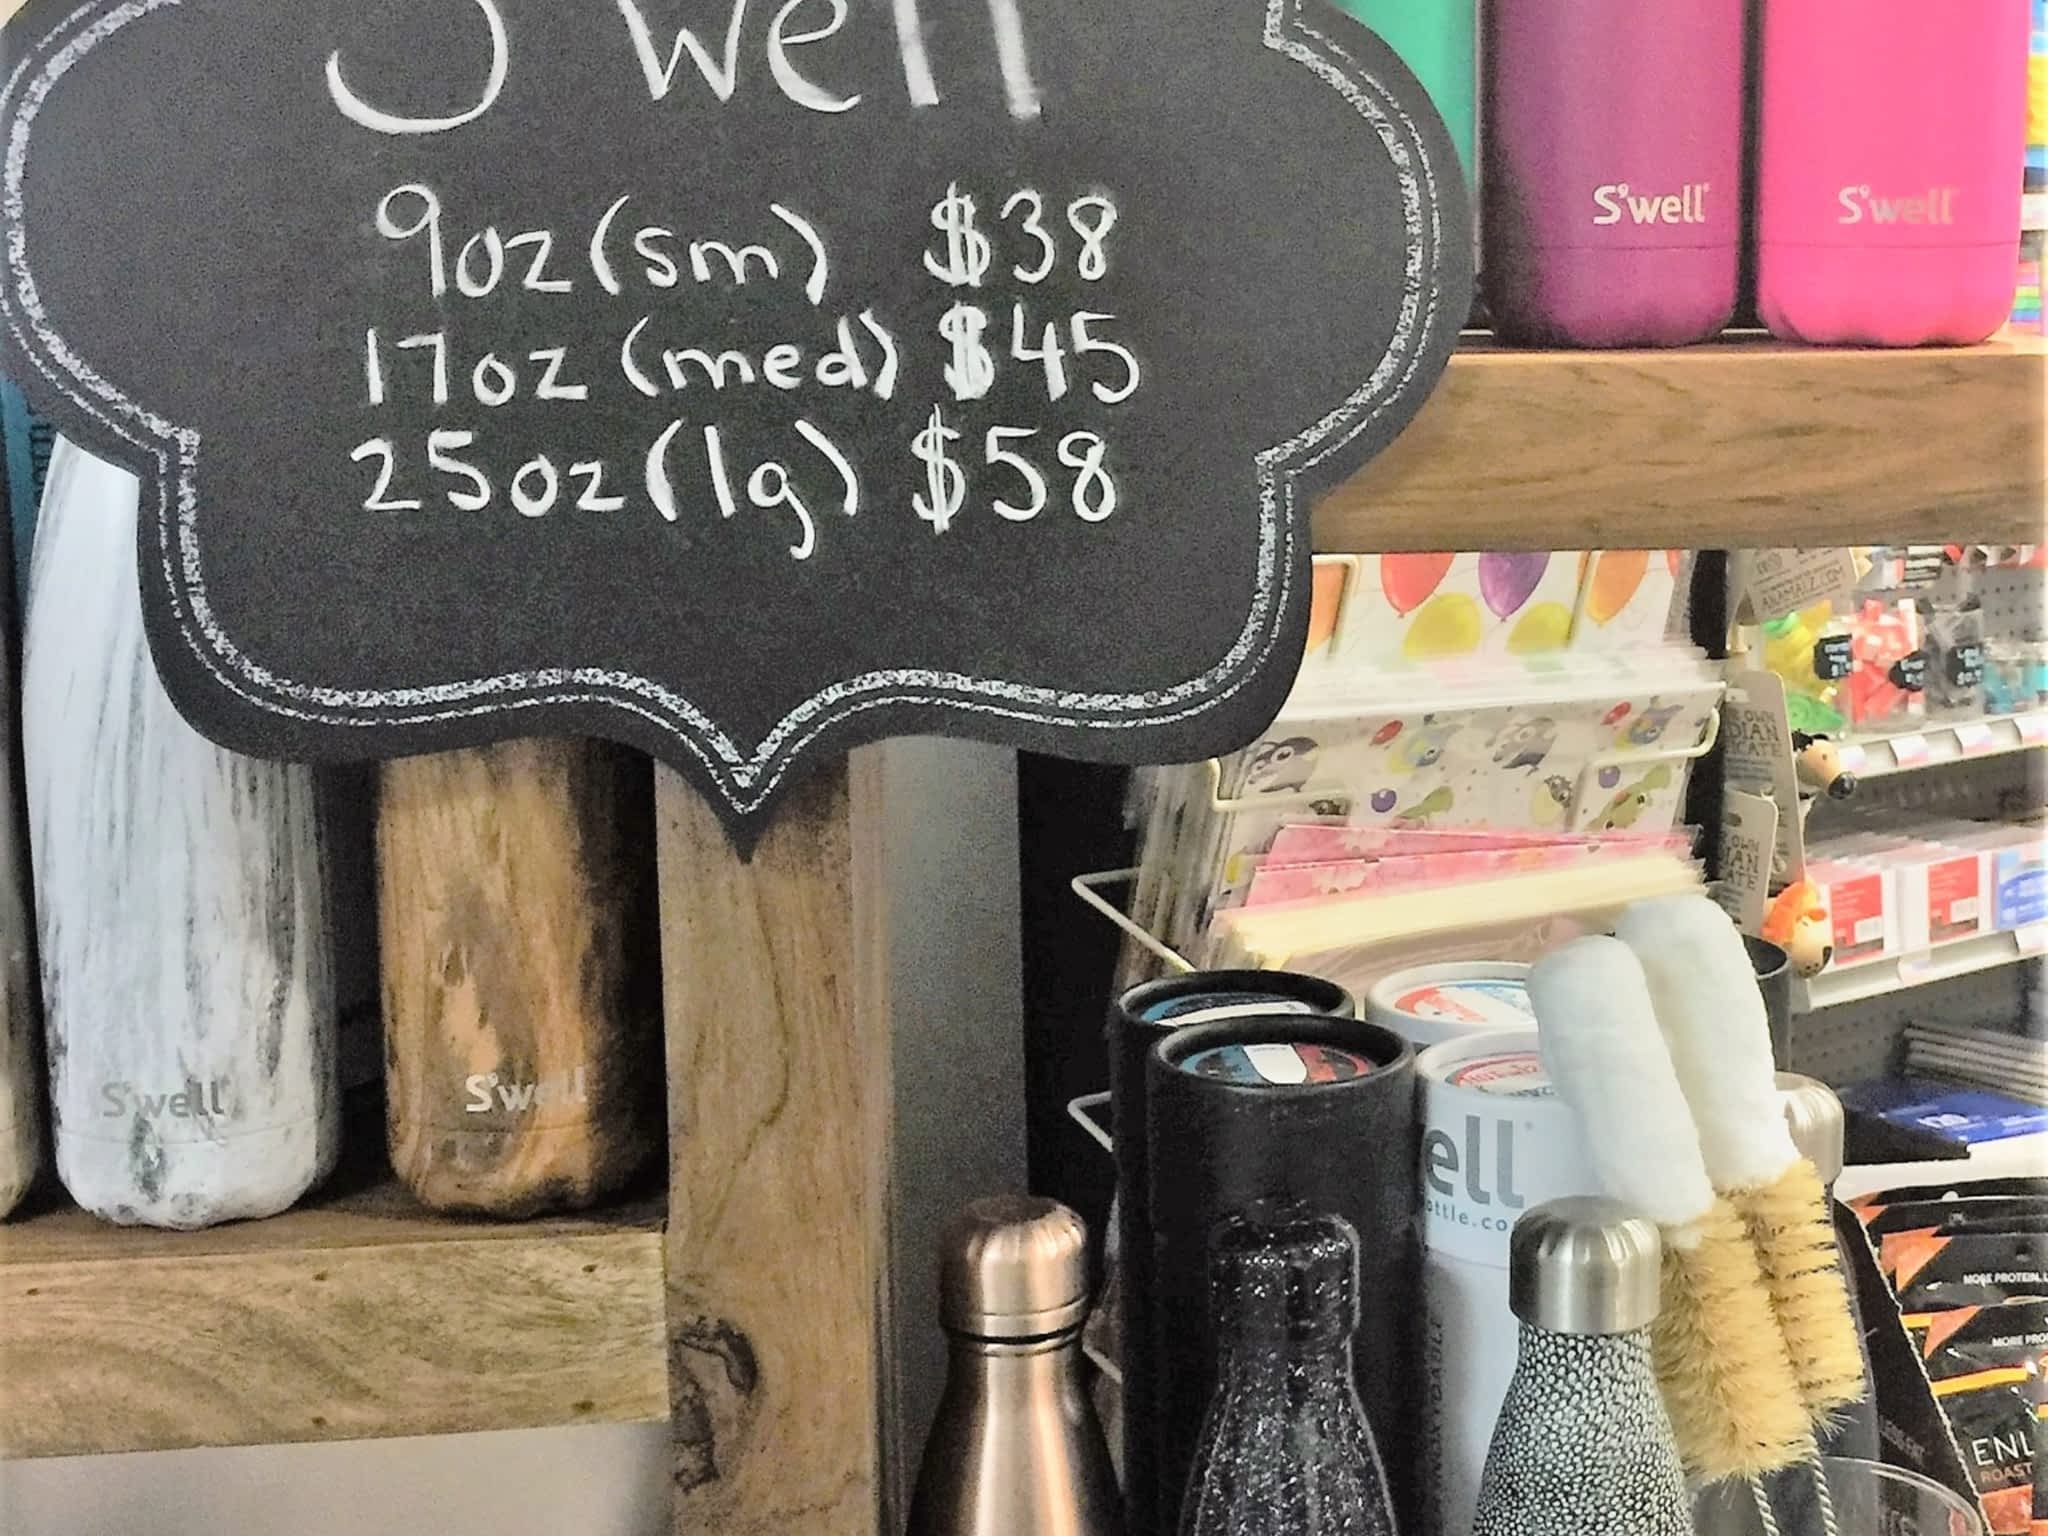 S'well
9oz (sm) $38
17oz (med) $45
25oz (lg) $58
S'well
S'well
ANAMALZ.COM
S'well
S'well
ell
ottle.co
MORE PROTEIN, L
MORE PRO
ENL
ROAST